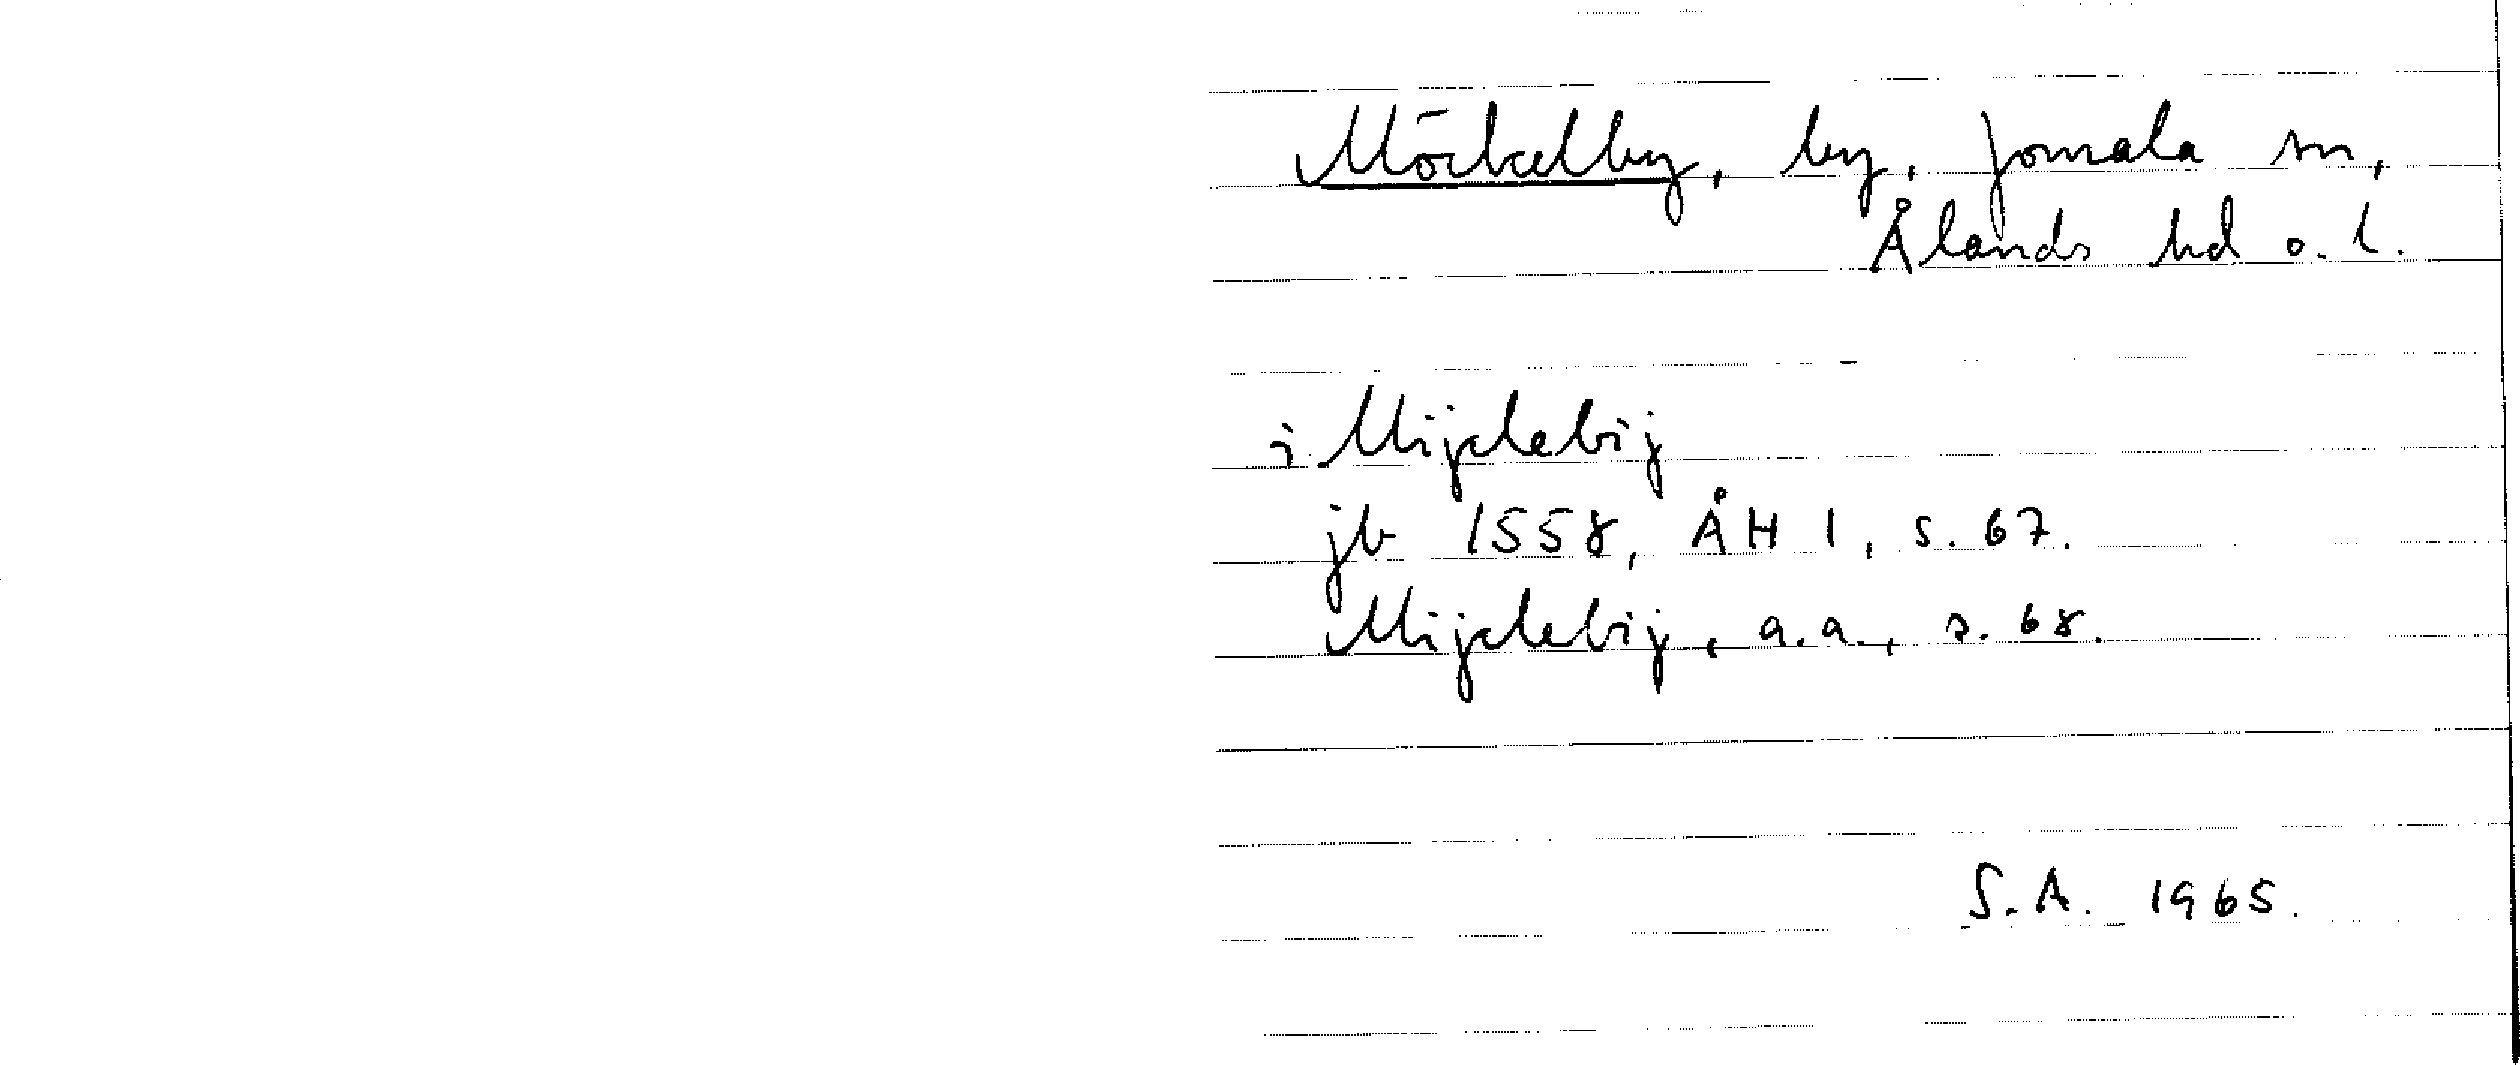 Möckelby, by, Jomala sn,
Ålands hd o. l.
i Mijclebij
jb 1558, ÅH 1, s. 67.
Mijclebij, a.a., s. 68.
S.A. 1965.